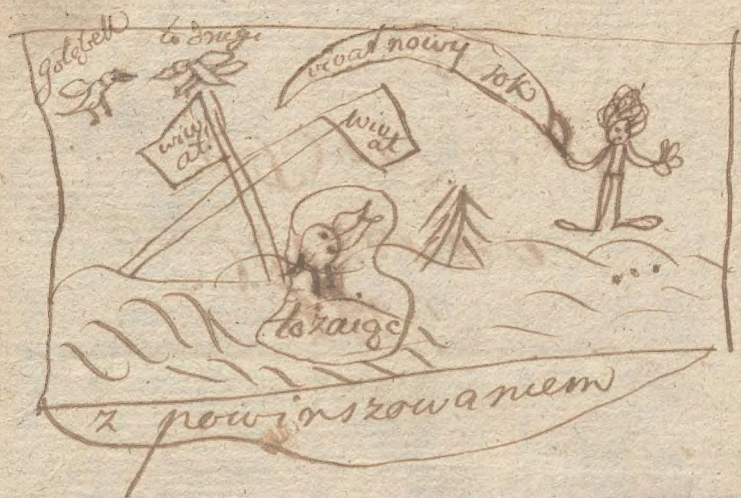 gołąbek
to drugi
wiwat nowy rok
wiw
at
wiw
at
to zaiąc
z powinszowaniem